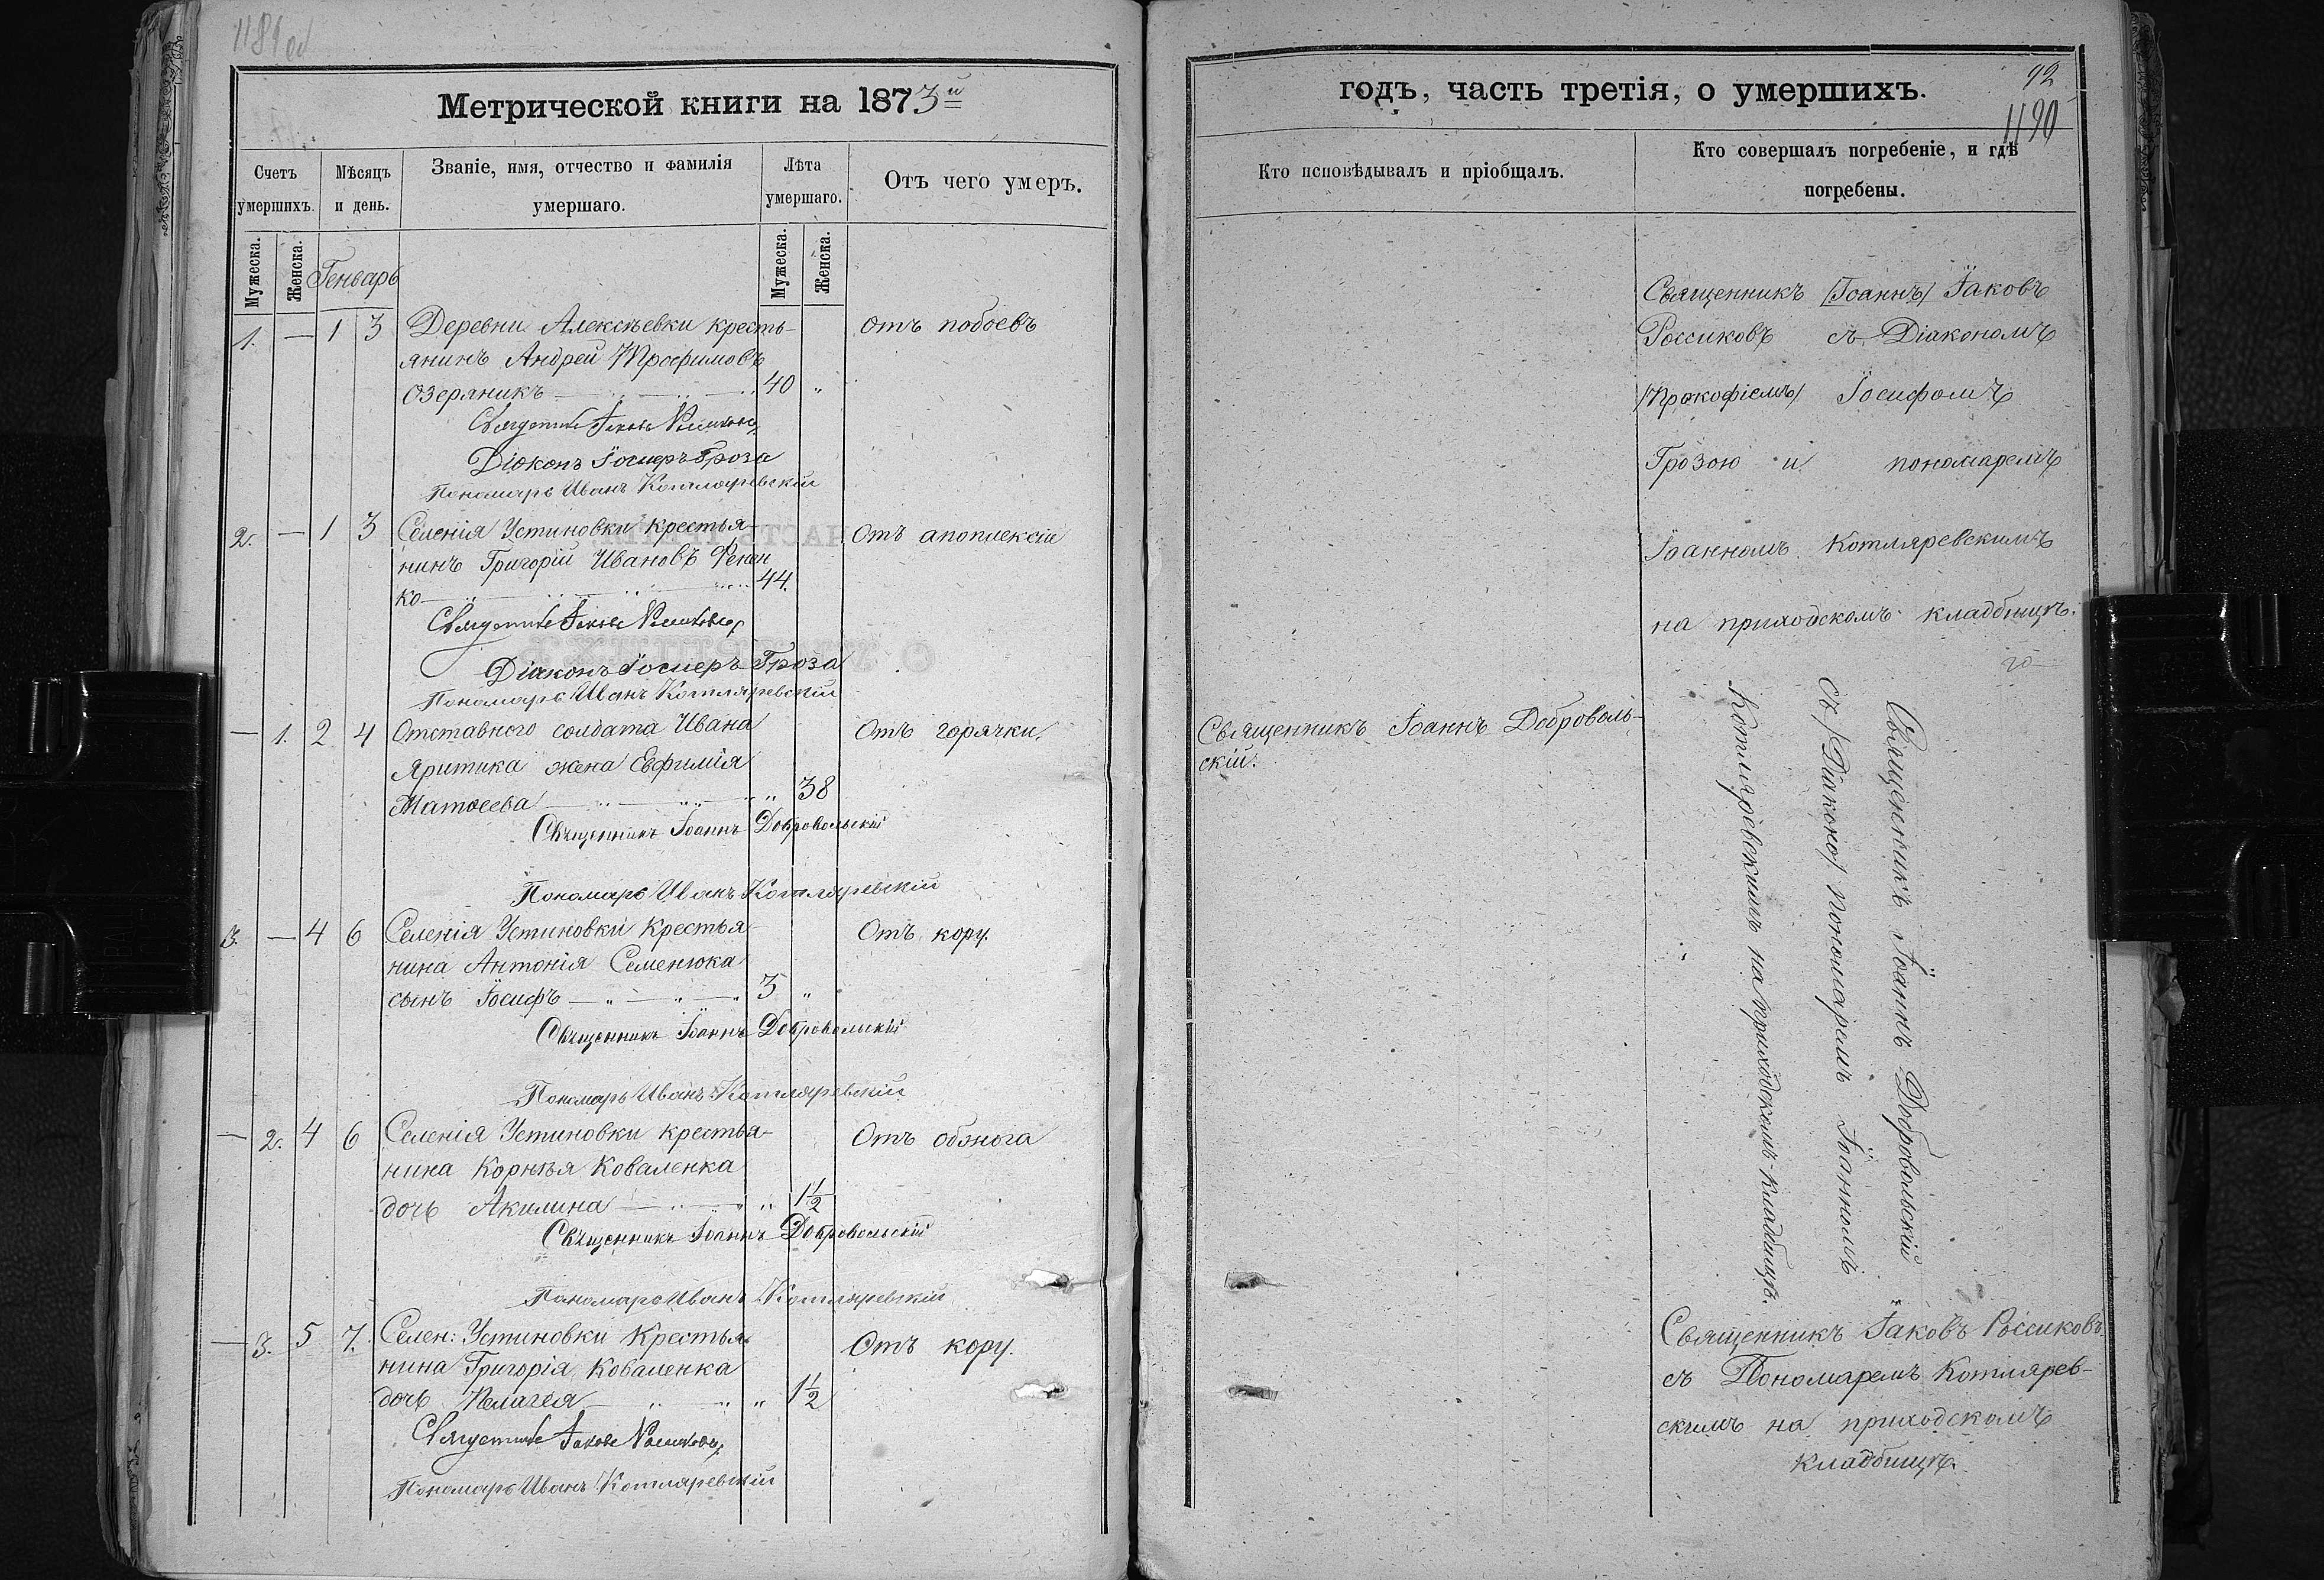 1189 об
Метрической книги на 1873й
Счетъ умершихъ.
Мѣсяцъ и день.
Званіе, имя, отчество и фамилія умершаго.
Лѣта умершаго.
Отъ чего умеръ.
Мужеска.
Женска.
Генварь
Мужеска.
Женска.
1. — 1 3 Деревни Алексѣевки кресть- отъ побоевъ
янинъ Андрей Трофимовъ
Озеряникъ 40 „
Священникъ Іаковъ Россиковъ
Діаконъ Іосифъ Гроза
Пономарь Иванъ Котляревскій
2. — 1 3 Селенія Устиновки крестья- Отъ апоплексіи
нинъ Григорій Ивановъ Фенен
ко 44.
Священникъ Іаковъ Россиковъ
Діаконъ Іосифъ Гроза
Пономарь Иванъ Котляревскій
— 1. 2 4 Отставного солдата Ивана Отъ горячки.
Яритика жена Евфимія
Матѳеева „ 38
Священникъ Іоаннъ Добровольскій
Пономарь Иванъ Котляревскій
3. — 4 6 Селенія Устиновки крестья- Отъ кору.
нина Антонія Семенюка
сынъ Іосифъ 3 „
Священникъ Іоаннъ Добровольскій
Пономарь Иванъ Котляревскій
— 2. 4 6 Селенія Устиновки крестья- Отъ обжога
нина Корнѣя Коваленка
дочь Акилина „ 1½
Священникъ Іоаннъ Добровольскій
Пономарь Иванъ Котляревскій
— 3. 5 7. Селен: Устиновки крестья- Отъ кору.
нина Григорія Коваленка
дочь Пелагея „ 1½
Священникъ Іаковъ Россиковъ
Пономарь Иванъ Котляревскій
годъ, часть третія, о умершихъ.
92
1190
Кто исповѣдывалъ и пріобщалъ.
Кто совершалъ погребеніе, и гдѣ
погребены.
Священникъ /Іоаннъ/ Іаковъ
Россиковъ съ Діакономъ
/Прокофіемъ/ Іосифомъ
Грозою и пономаремъ
Іоанномъ Котляревскимъ
на приходскомъ кладбищѣ.
Священникъ Іоаннъ Доброволь-
скій.
Священникъ Іоаннъ Добровольскій
съ /Діакono/ пономаремъ Іоанномъ
Котляревскимъ на приходскомъ кладбищѣ.
Священникъ Іаковъ Россиковъ
съ Пономаремъ Котлярев-
скимъ на приходскомъ
кладбищѣ.